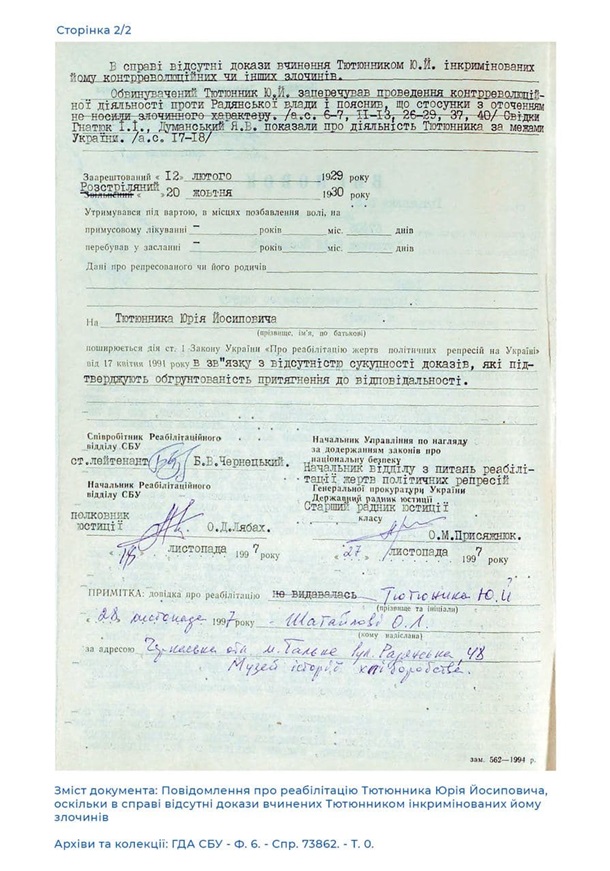 Сторінка 2/2
В справі відсутні докази вчинення Тютюнником Ю.Й. інкримінованих
йому контрреволюційних чи інших злочинів.
Обвинувачений Тютюнник Ю.Й. заперечував проведення контрреволюцій-
ної діяльності проти Радянської влади і пояснив, що стосунки з оточенням
не носили злочинного характеру. /а.с. 6-7, II-I3, 26-29, 37, 40/ Свідки
Гнатюк І.І., Думанський Я.В. показали про діяльність Тютюнника за межами
України. /а.с. I7-I8/
Заарештований « I2 » лютого 1929 року
Розстріляний
Звільнений « 20 жовтня 1930 року
Утримувався під вартою, в місцях позбавлення волі, на
примусовому лікуванні — років міс. днів
перебував у засланні — років міс. днів
Дані про репресованого чи його родичів
На Тютюнника Юрія Йосиповича
(прізвище, ім'я, по батькові)
поширюється дія ст. 1 Закону України «Про реабілітацію жертв політичних репресій на Україні»
від 17 квітня 1991 року в зв"язку з відсутністю сукупності доказів, які під-
тверджують обгрунтованість притягнення до відповідальності.
Співробітник Реабілітаційного
відділу СБУ
ст.лейтенант Б.В.Чернецький.
Начальник Реабілітаційного
відділу СБУ
полковник
юстиції О.Д.Лябах.
« 18 » листопада 1997 року
Начальник Управління по нагляду
за додержанням законів про
національну безпеку
Начальник відділу з питань реабілі-
тації жертв політичних репресій
Генеральної прокуратури України
Державний радник юстиції
Старший радник юстиції
класу
О.М.Присяжнюк.
« 27 » листопада 1997 року
ПРИМІТКА: довідка про реабілітацію не видавалась Тютюника Ю.Й
(прізвище та ініціали)
« 28 листопада 1997 року - Шатайлові О.Л.
(кому надіслана)
за адресою Черкаська обл. м. Тальне вул. Радянська, 48
Музей історії хліборобства.
зам. 562—1994 р.
Зміст документа: Повідомлення про реабілітацію Тютюнника Юрія Йосиповича,
оскільки в справі відсутні докази вчинених Тютюнником інкримінованих йому
злочинів
Архіви та колекції: ГДА СБУ - Ф. 6. - Спр. 73862. - Т. 0.